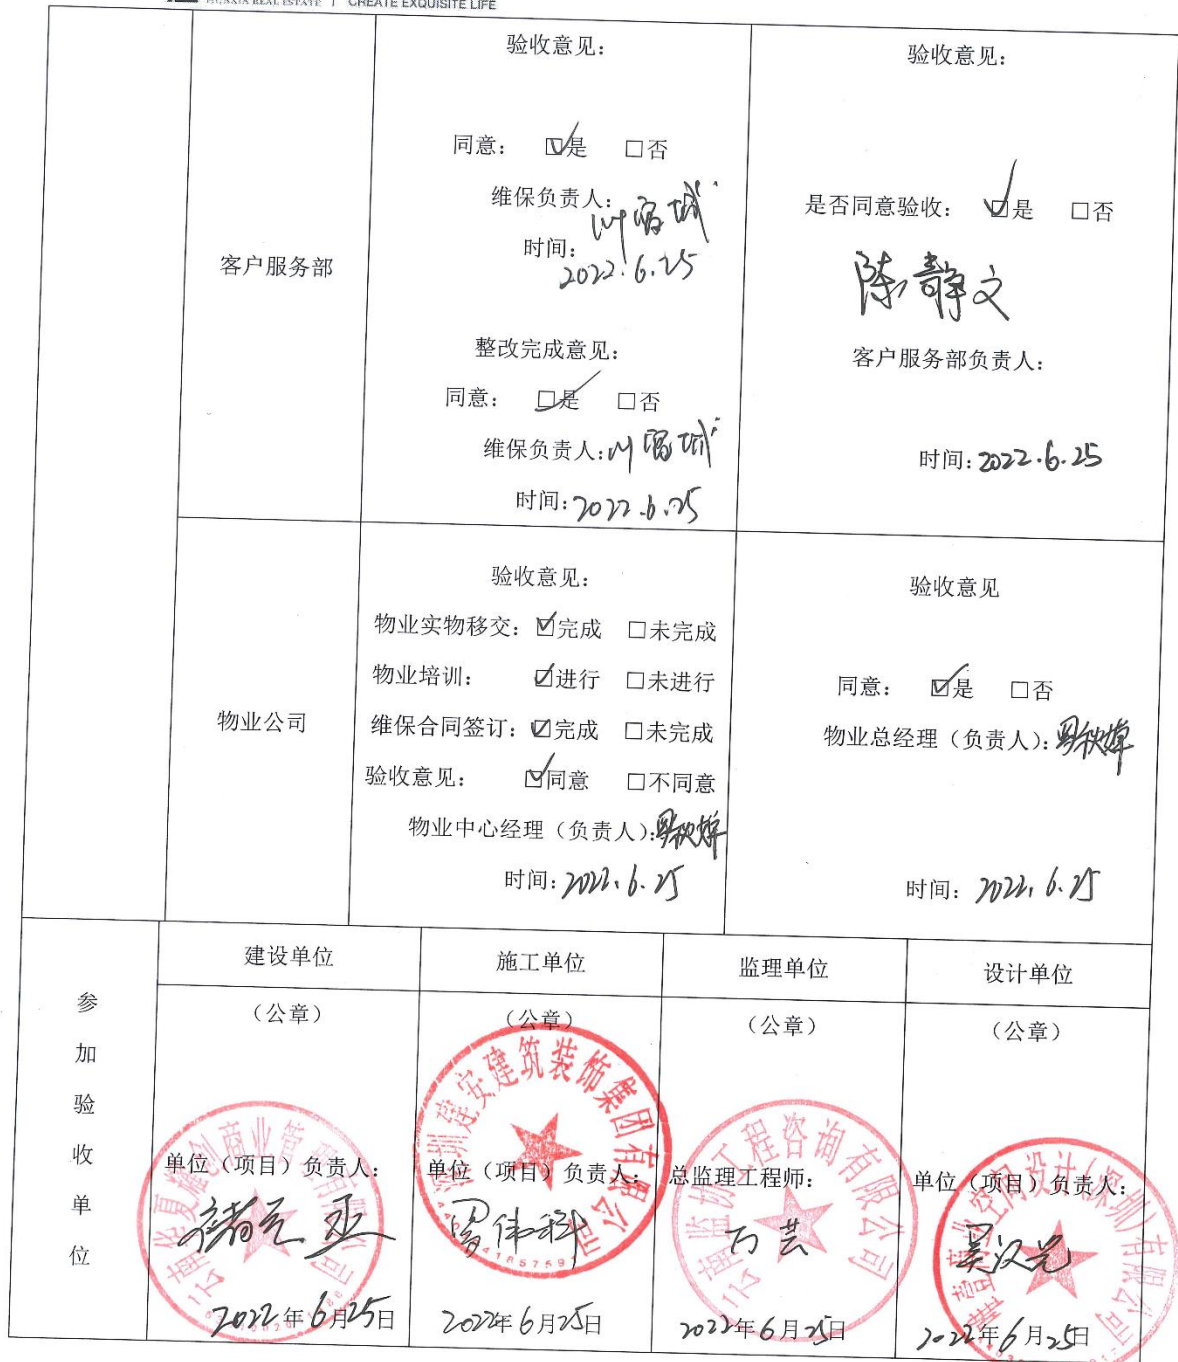 CREATE EXQUISITE LIFE
客户服务部
验收意见：
同意： ☑是 □否
维保负责人：
时间：
2022.6.25
整改完成意见：
同意： ☑是 □否
维保负责人：
时间：2022.6.25
验收意见：
是否同意验收： ☑是 □否
陈静文
客户服务部负责人：
时间：2022.6.25
物业公司
验收意见：
物业实物移交：☑完成 □未完成
物业培训： ☑进行 □未进行
维保合同签订：☑完成 □未完成
验收意见： ☑同意 □不同意
物业中心经理（负责人）：
时间：2022.6.25
验收意见
同意： ☑是 □否
物业总经理（负责人）：
时间：2022.6.25
参加验收单位
建设单位
（公章）
单位（项目）负责人：
2022年6月25日
施工单位
（公章）
深圳建安建筑装饰集团有限公司
单位（项目）负责人：
2022年6月25日
监理单位
（公章）
云南监协工程咨询有限公司
总监理工程师：
2022年6月25日
设计单位
（公章）
空间设计(深圳)有限公司
单位（项目）负责人：
吴汉光
2022年6月25日